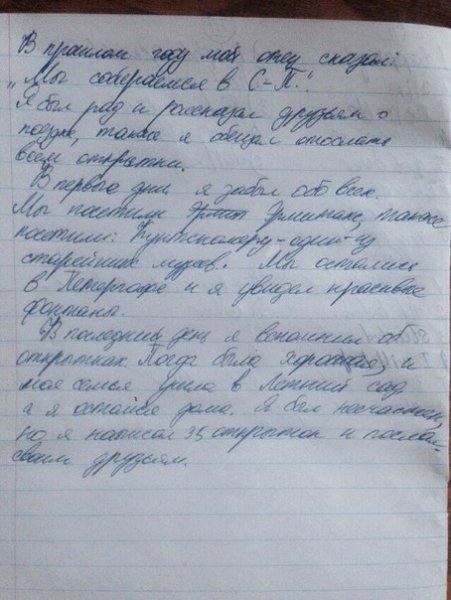 В прошлом году мой отец сказал:
„Мы собераемся в С-П."
Я был рад и рассказал друзьям о
поезде, также я обещал отослать
всем открытки.
В первые дни я забыл об всех.
Мы посетили Эрмитаж, также
посетили: Кунтскамеру - один из
старейших музеев. Мы остались
в Петергофе и я увидел красивые
фонтаны.
В последний день я вспомнил об
открытках. Погода была хорошая, и
моя семья ушла в Летний сад
а я остался дома. Я был несчастен,
но я написал 35 открыток и послал
своим друзьям.